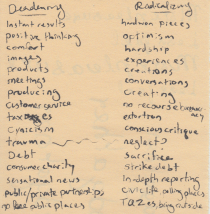 Deadening
instant results
positive thinking
comfort
images
products
meetings
producing
customer service
taxes
Cynicism
trauma
Debt
consumer charity
sensational news
public/private partnerships
public places
Radicalizing
hardwon pieces
optimism
hardship
experiences
creations
conversations
Creating
no recourse
extortion
conscious critique
neglect?
Sacrifice
strike debt
in depth reporting
CIVIC life
TAZes,